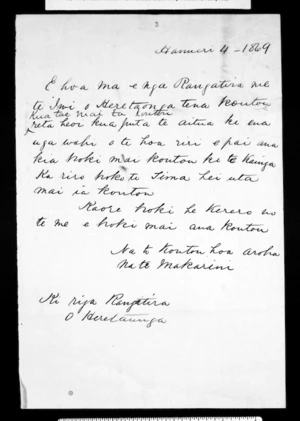 3
Hanueri 4 - 1869
E hoa ma e nga Rangatira me
te Iwi o Heretaonga tena koutou
kua tae mai ta koutou
reta heoi kua puta te aitua ki ena
nga wahi o te hoa riri e pai ana
kia hoki mai koutou ki te kainga
Ka riro hoki te Tima hei uta
mai ia koutou
Kaore hoki he korero mo
te me e hoki mai ana koutou
Na to koutou hoa aroha
Na te Makarini
Ki nga Rangatira
O Heretaunga